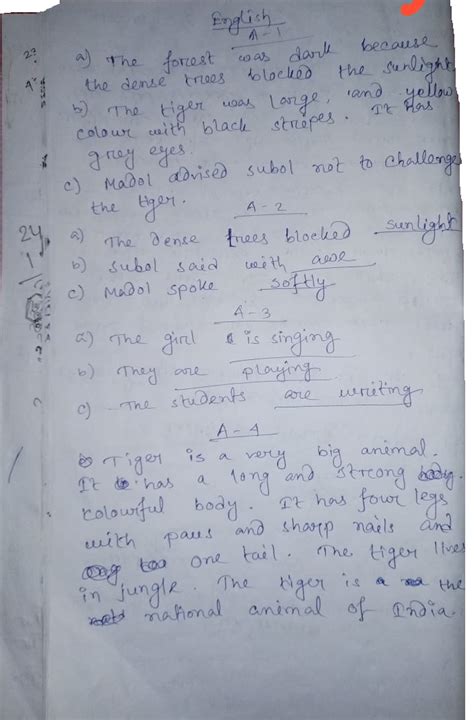 English
A-1
a) The forest was dark because
the dense trees blocked the sunlight
b) The tiger was large, and yellow
colour with black stripes. It has
grey eyes.
c) Madol advised subol not to challenge
the tiger.
A-2
a) The dense trees blocked sunlight
b) Subol said with awe
c) Madol spoke softly
A-3
a) The girl is singing
b) They are playing
c) The students are writing
A-4
Tiger is a very big animal.
It has a long and strong
colourful body. It has four legs
with paws and sharp nails and
one tail. The tiger lives
in jungle. The tiger is the
national animal of India.